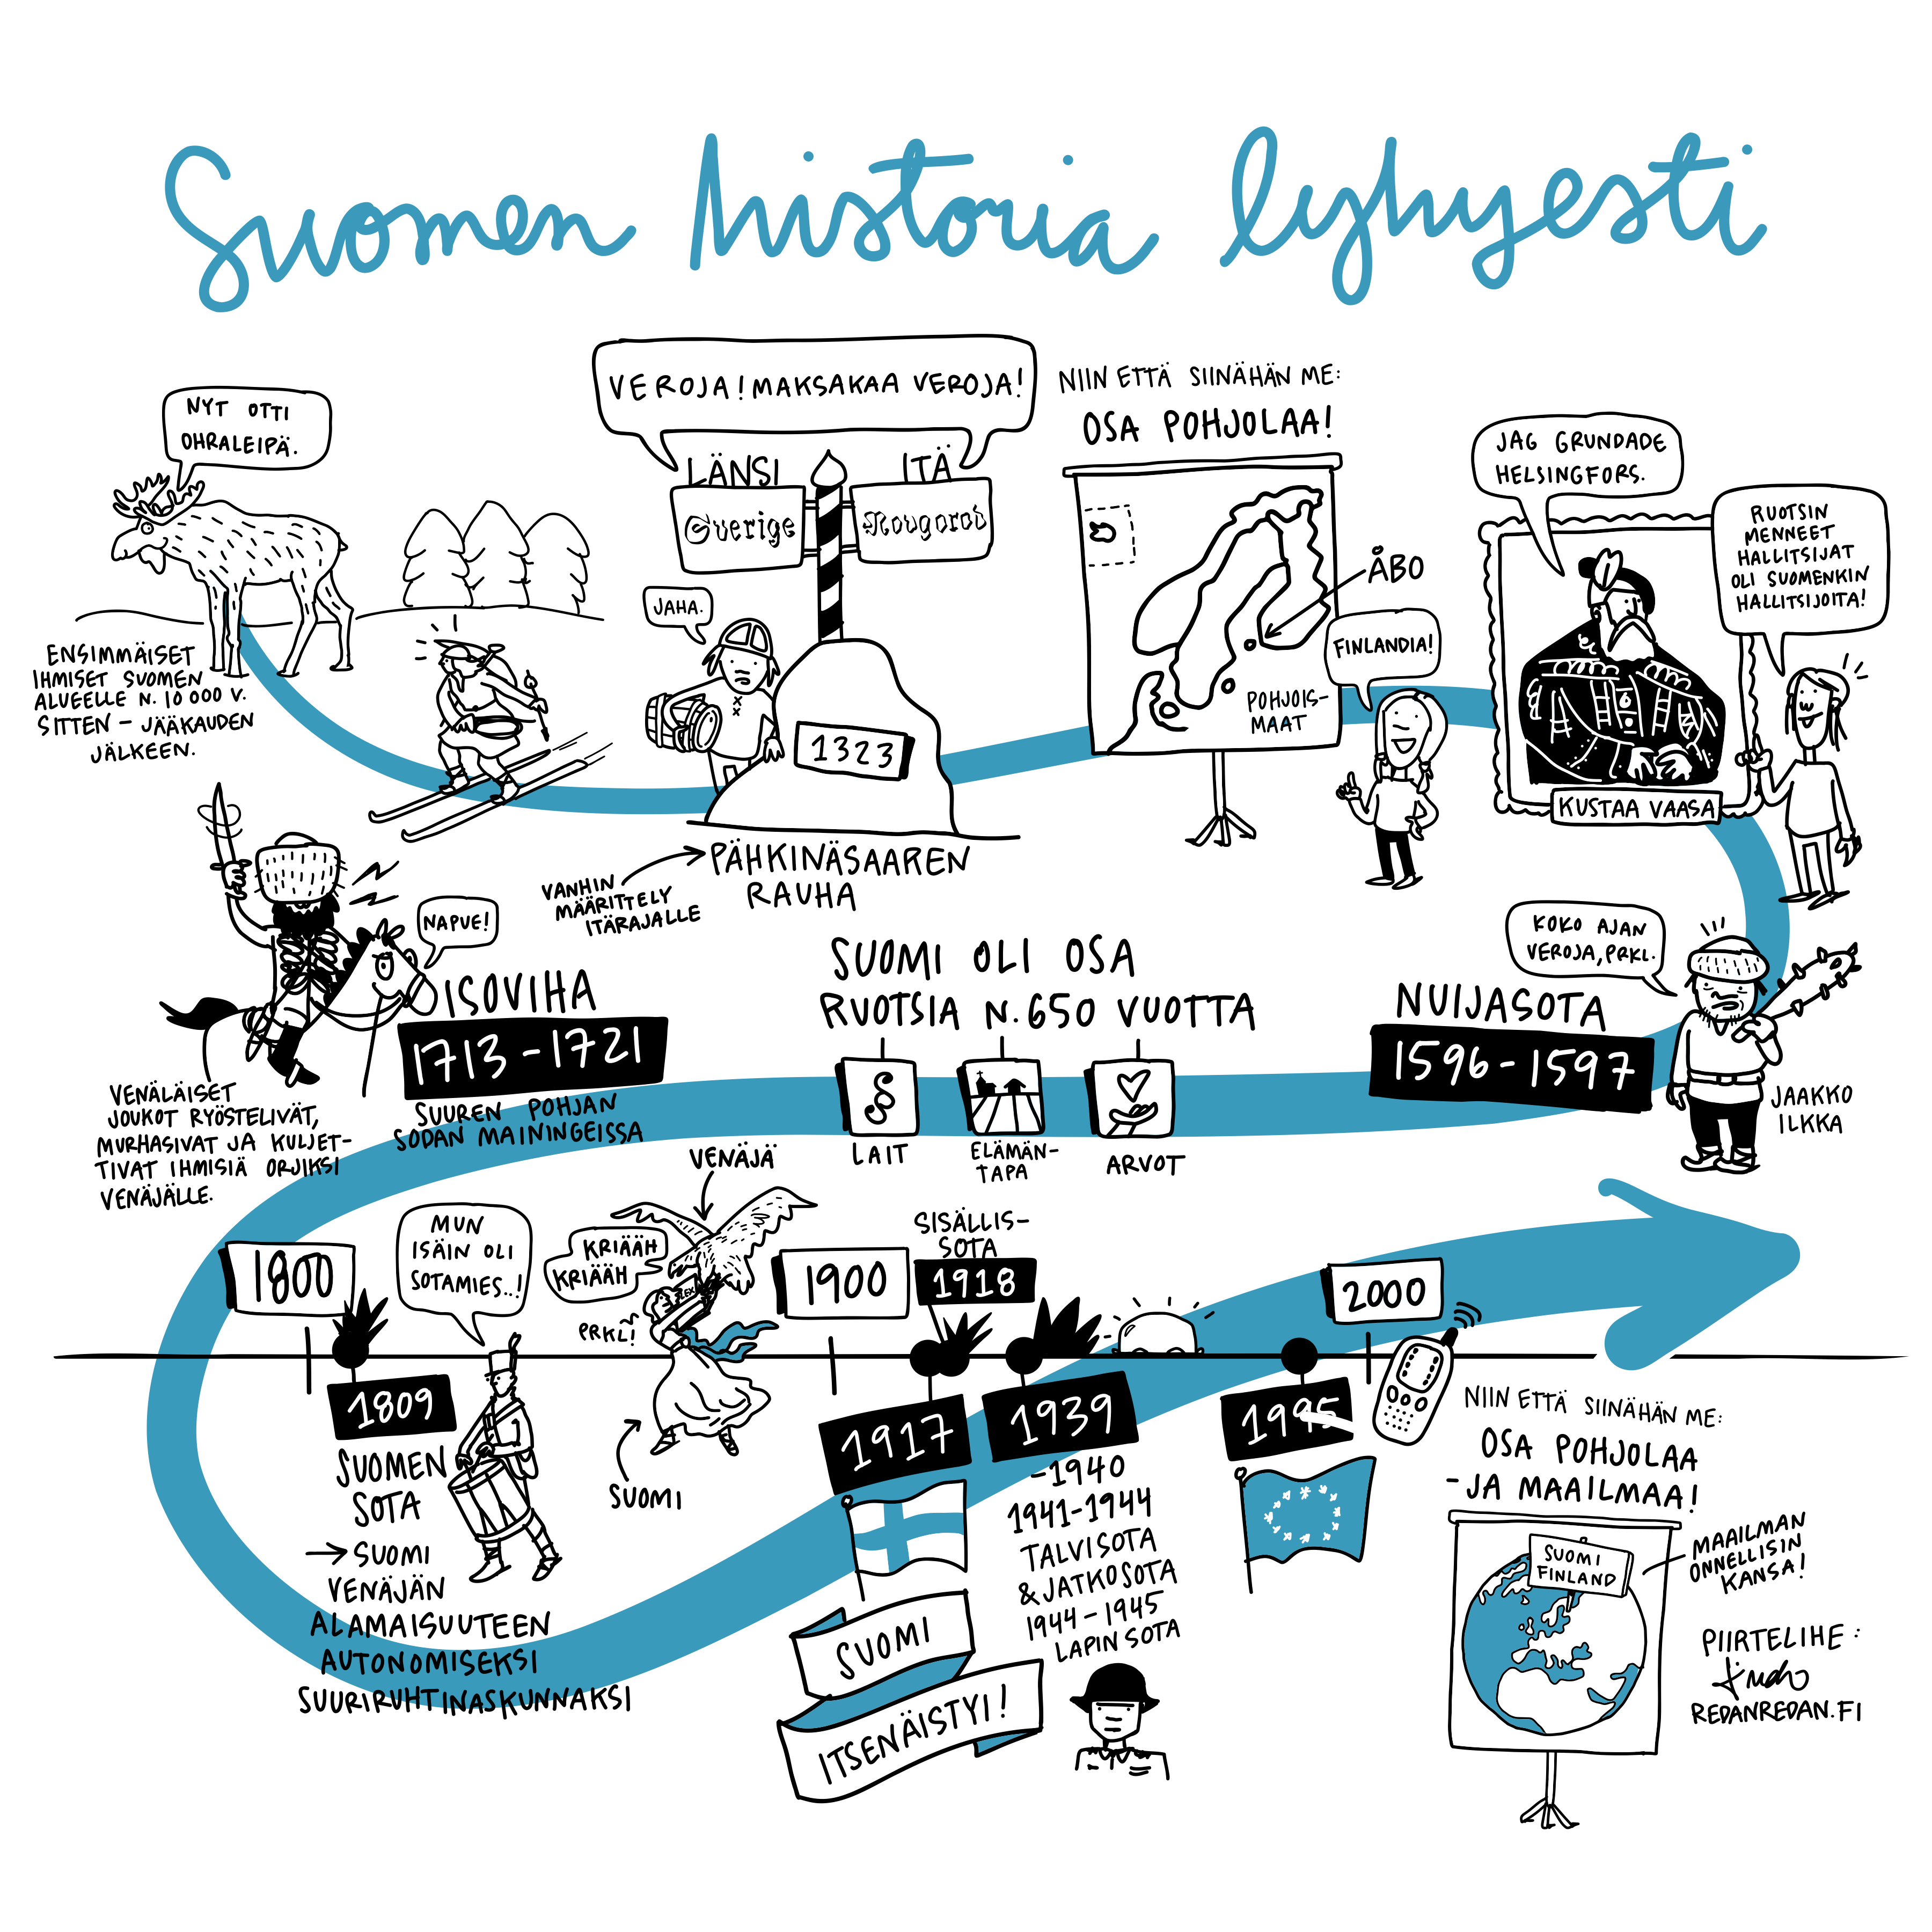 Suomen historia lyhyesti
NYT OTTI
OHRALEIPÄ.
ENSIMMÄISET
IHMISET SUOMEN
ALUEELLE N. 10 000 V.
SITTEN - JÄÄKAUDEN
JÄLKEEN.
VEROJA! MAKSAKAA VEROJA!
LÄNSI
ITÄ
Sverige
Novgorod
JAHA.
1323
VANHIN
MÄÄRITTELY
ITÄRAJALLE
PÄHKINÄSAAREN
RAUHA
NIIN ETTÄ SIINÄHÄN ME:
OSA POHJOLAA!
ÅBO
POHJOIS-
MAAT
FINLANDIA!
JAG GRUNDADE
HELSINGFORS.
KUSTAA VAASA
RUOTSIN
MENNEET
HALLITSIJAT
OLI SUOMENKIN
HALLITSIJOITA!
KOKO AJAN
VEROJA, PRKL.
JAAKKO
ILKKA
NUIJASOTA
1596-1597
SUOMI OLI OSA
RUOTSIA N. 650 VUOTTA
LAIT
ELÄMÄN-
TAPA
ARVOT
NAPUE!
ISOVIHA
1713-1721
SUUREN POHJAN
SODAN MAININGEISSA
VENÄLÄISET
JOUKOT RYÖSTELIVÄT,
MURHASIVAT JA KULJET-
TIVAT IHMISIÄ ORJIKSI
VENÄJÄLLE.
1800
1809
SUOMEN
SOTA
→ SUOMI
VENÄJÄN
ALAMAISUUTEEN
AUTONOMISEKSI
SUURIRUHTINASKUNNAKSI
MUN
ISÄIN OLI
SOTAMIES..!
VENÄJÄ
KRIÄÄH
KRIÄÄH
LEX
PRKL!
SUOMI
1900
SISÄLLIS-
SOTA
1918
1917
SUOMI
ITSENÄISTYI!
1939
-1940
1941-1944
TALVISOTA
& JATKOSOTA
1944-1945
LAPIN SOTA
1995
2000
NIIN ETTÄ SIINÄHÄN ME:
OSA POHJOLAA
-JA MAAILMAA!
SUOMI
FINLAND
MAAILMAN
ONNELLISIN
KANSA!
PIIRTELIHE:
REDANREDAN.FI